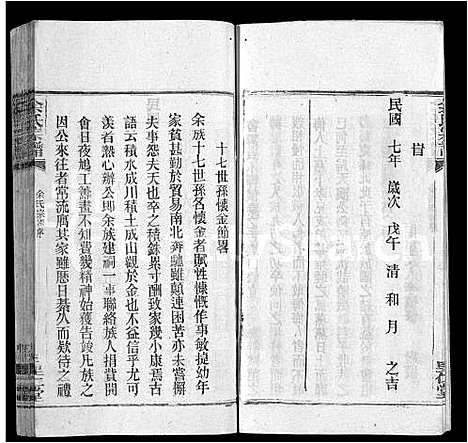 首
民國 七年 歲次 戊午 清和月 之吉
十七世孫名懷金節畧
余族十七世孫名懷金者賦性慷慨作事敏㨗幼年
家貧甚勤於貿易南北奔馳雖顛連困苦亦未嘗懈
夫事怨夫天也卒之積銖累寸酬致家幾小康焉古
語云積水成川積土成山觀於金也不信乎尤可
羡者熱心辦公即余族建祠一事聯絡族人捐貲開
會日夜鳩工善畫不知費幾精神始獲告竣凡族之
因公來往者常流屑其家雖愿日綦久而欵待之禮
余氏宗譜